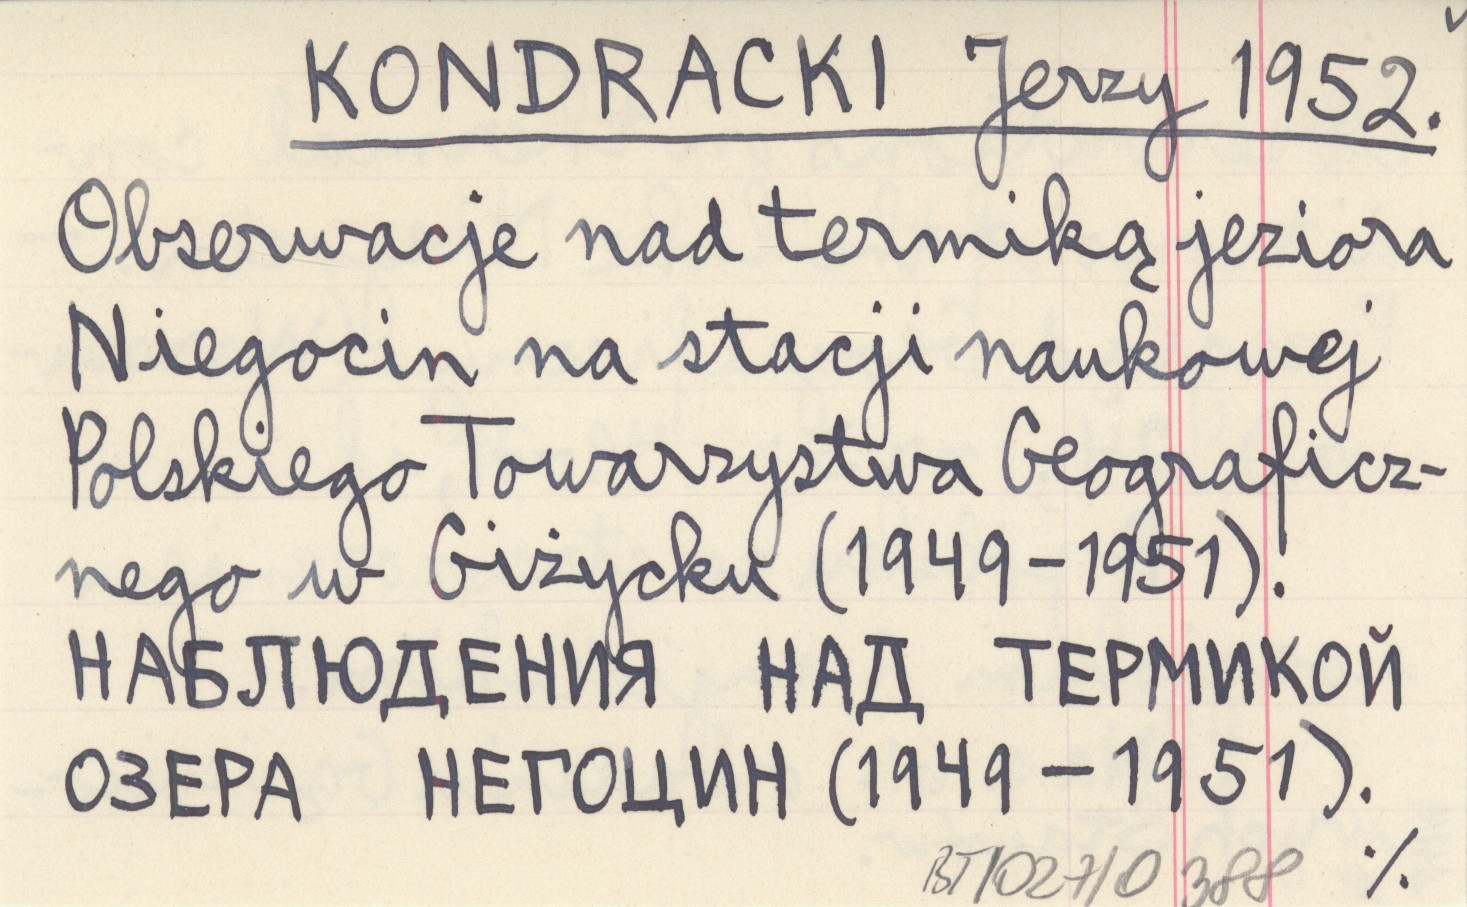 KONDRACKI Jerzy 1952.
Obserwacje nad termiką jeziora
Niegocin na stacji naukowej
Polskiego Towarzystwa Geograficz-
nego w Giżycku (1949-1951).
НАБЛЮДЕНИЯ НАД ТЕРМИКОЙ
ОЗЕРА НЕГОЦИН (1949 - 1951).
BT/027/0 388 ./.